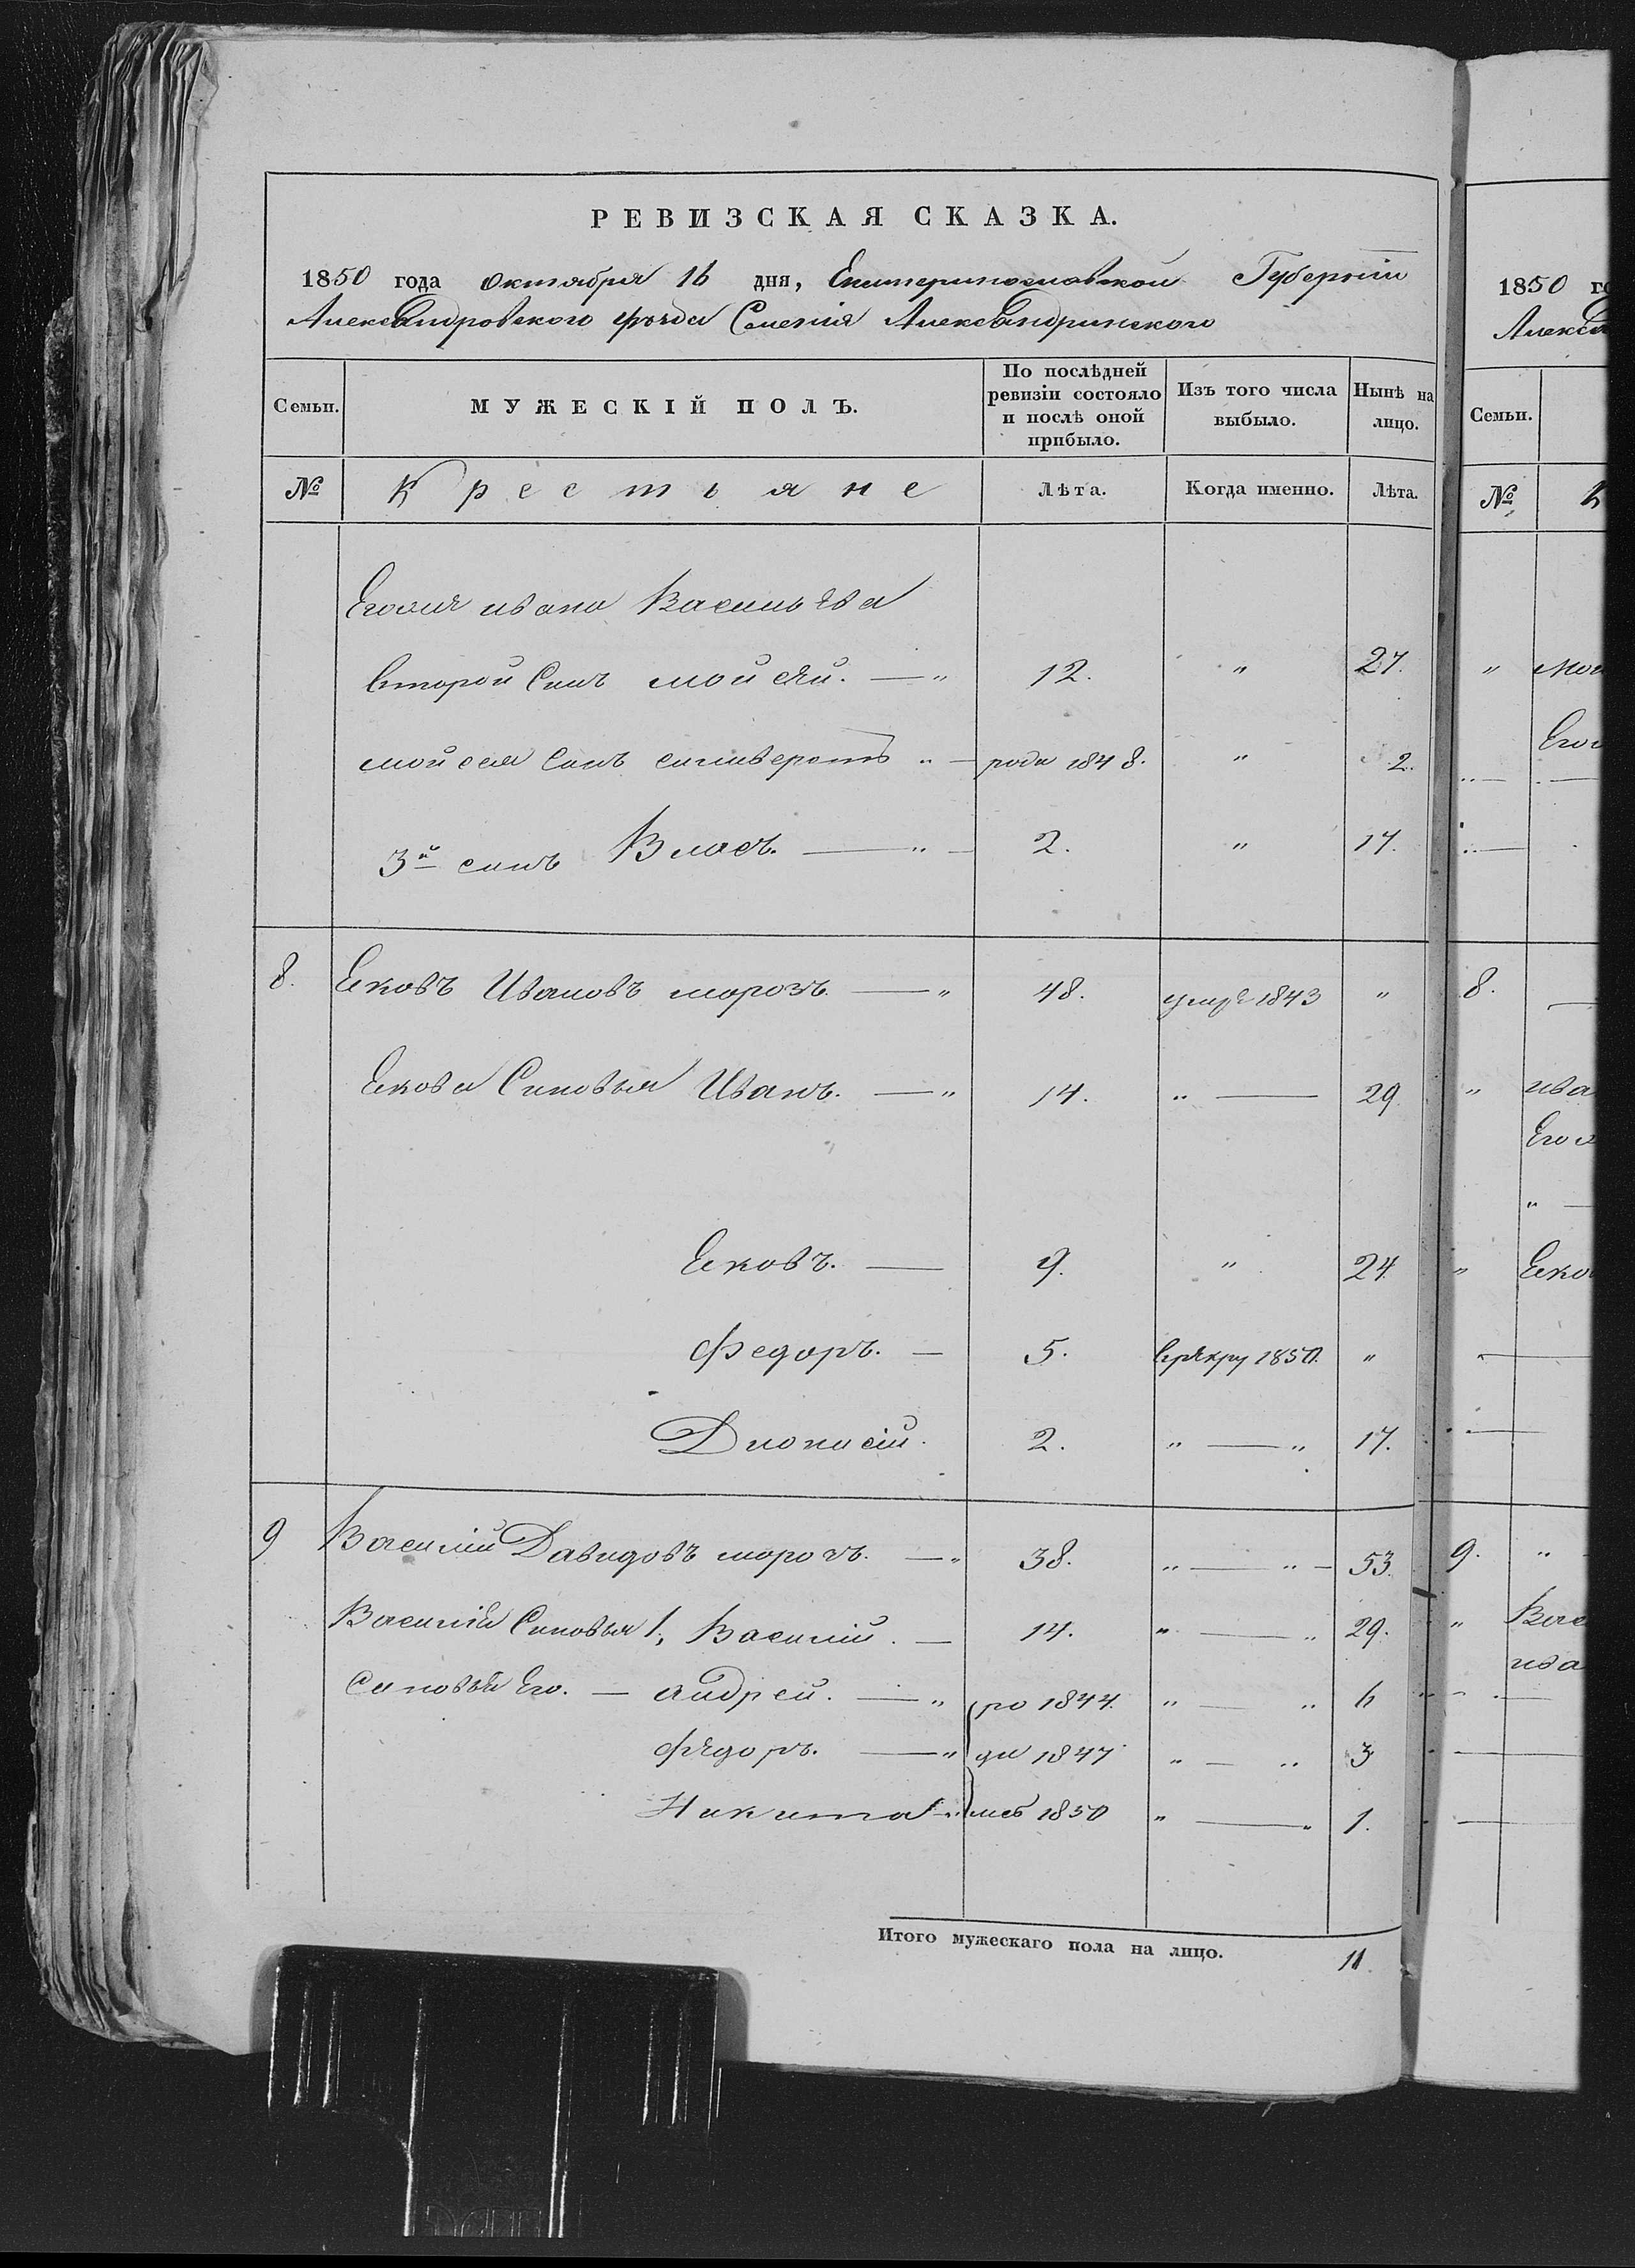 РЕВИЗСКАЯ СКАЗКА.
1850 года Октября 16 дня, Екатеринославской Губернии
Александровского уезда Селения Александринского
Семьи. МУЖЕСКІЙ ПОЛЪ. По послѣдней ревизіи состояло и послѣ оной прибыло. Изъ того числа выбыло. Нынѣ на лицо.
№ Крестьяне Лѣта. Когда именно. Лѣта.
ивана Василева
второй Синъ мойсей. — „ 12. „ 27.
мойсея Синъ силиверстъ „ — рода 1848. „ 2.
3й синъ Власъ. — „ — 2. „ 17.
8. Еković Ивановъ морозъ. — „ 48. умре 1843 „
Екова Синовья Иванъ. — „ 14. „ — 29
Ековъ. — 9. „ 24
Федоръ. — 5. врекру 1850. „
Дионосій. 2. „ — „ 17.
9 Василий Давидовъ морозъ. — „ 38. „ — „ — 53.
Василія Синовья 1, Василій. — 14. „ — „ 29.
Синовья Его. — Андрей. — „ ро 1844. „ — „ 6
Федоръ. — „ ди 1847 „ — „ 3
Никита „ лсь 1850 „ — „ 1.
Итого мужескаго пола на лицо. 11.
1850 го
Алекса
Семьи.
№
8.
ива
Его
Еко
9.
Вас
ива